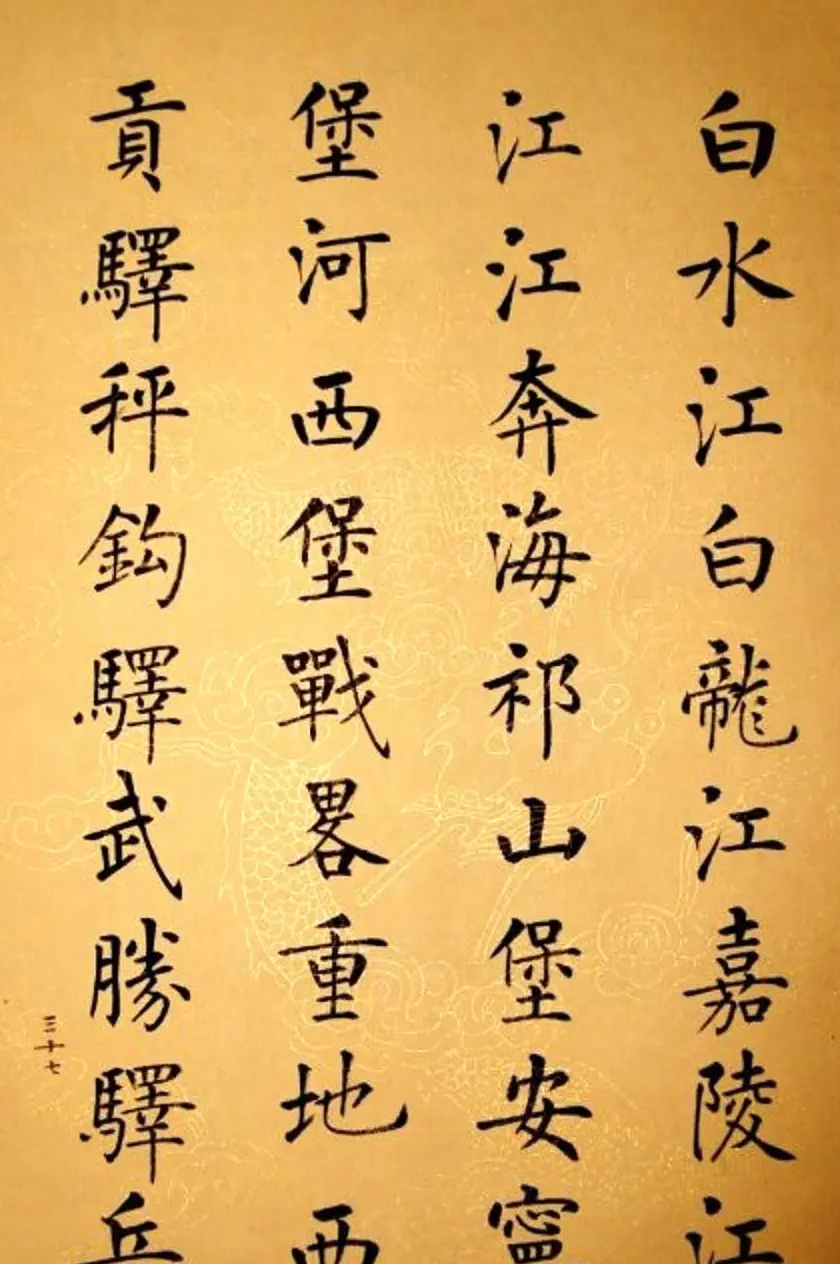 白水江白龍江嘉陵江
江江奔海祁山堡安寧
堡河西堡戰畧重地西
貢驛秤鈎驛武勝驛
三十七